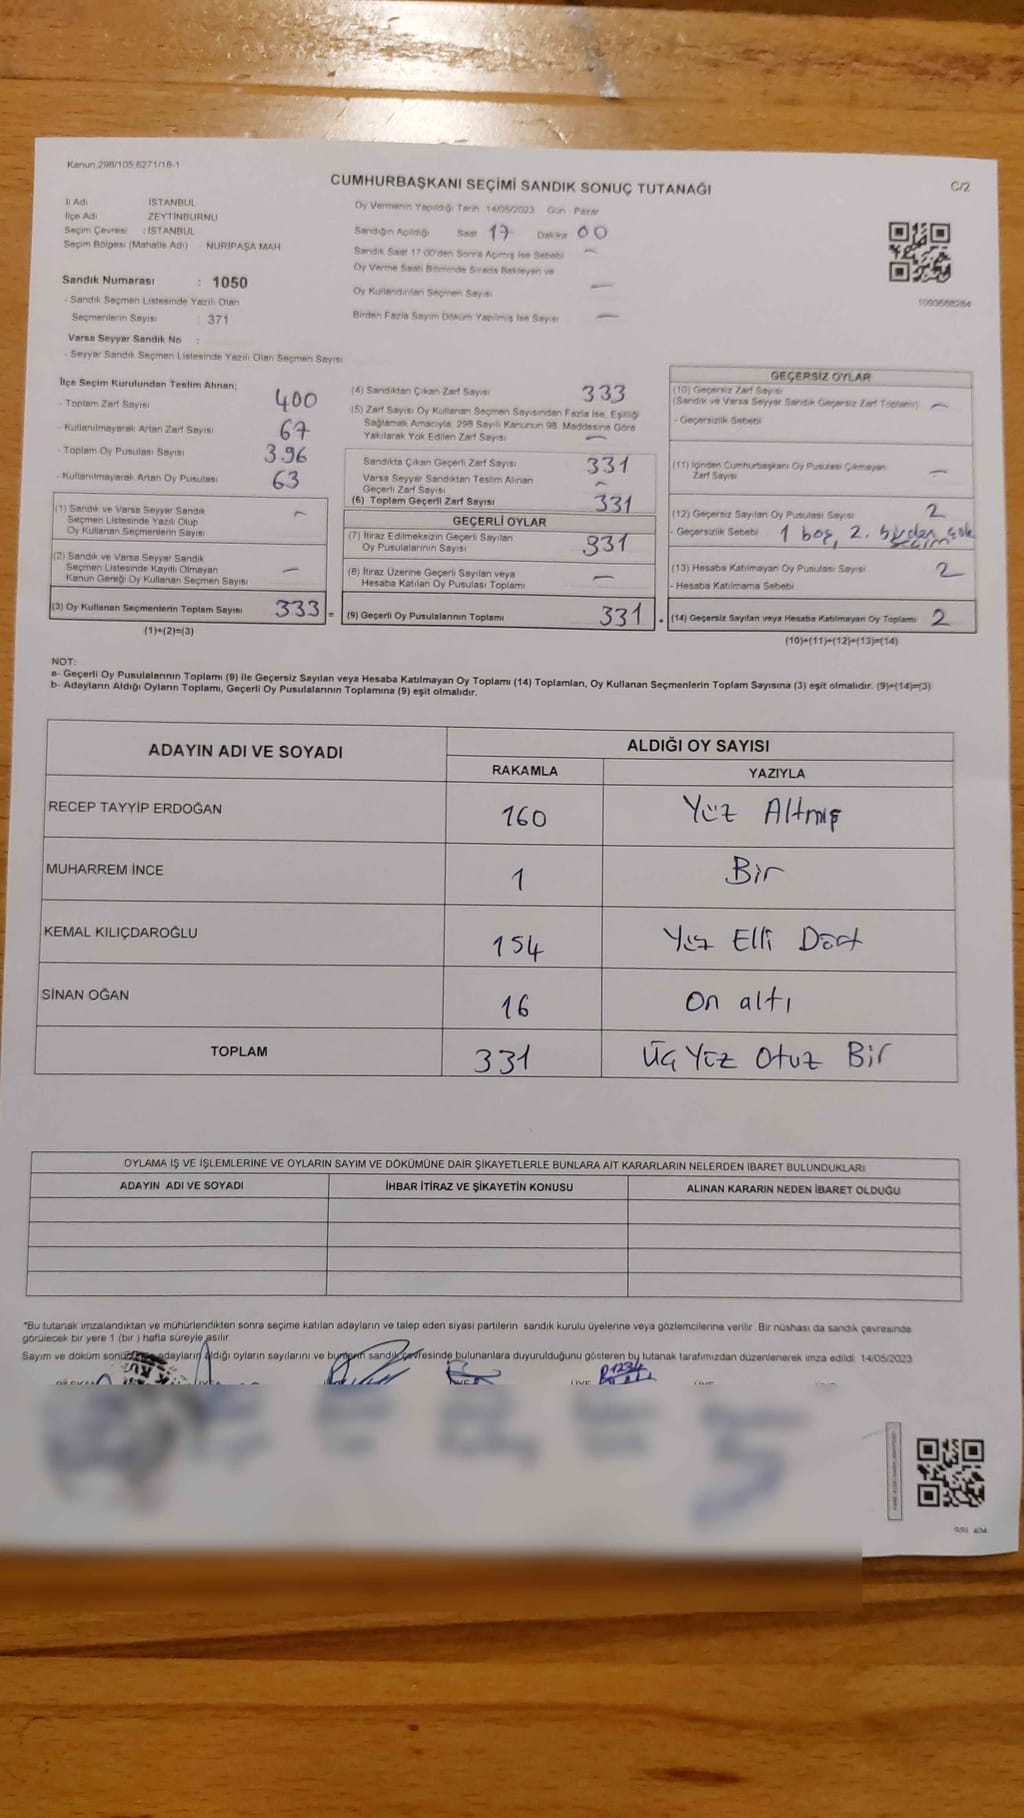 Kanun.298/105,6271/18-1
CUMHURBAŞKANI SEÇİMİ SANDIK SONUÇ TUTANAĞI
C/2
İl Adı İSTANBUL
İlçe Adı ZEYTİNBURNU
Seçim Çevresi : İSTANBUL
Seçim Bölgesi (Mahalle Adı) NURİPAŞA MAH
Sandık Numarası : 1050
- Sandık Seçmen Listesinde Yazılı Olan
Seçmenlerin Sayısı : 371
Varsa Seyyar Sandık No :
- Seyyar Sandık Seçmen Listesinde Yazılı Olan Seçmen Sayısı
Oy Vermenin Yapıldığı Tarih 14/05/2023 Gün Pazar
Sandığın Açıldığı Saat 17 Dakika 00
Sandık Saat 17.00'den Sonra Açılmış İse Sebebi —
Oy Verme Saati Bitiminde Sırada Bekleyen ve
Oy Kullandırılan Seçmen Sayısı —
Birden Fazla Sayım Döküm Yapılmış İse Sayısı —
1093688284
İlçe Seçim Kurulundan Teslim Alınan;
- Toplam Zarf Sayısı 400
- Kullanılmayarak Artan Zarf Sayısı 67
- Toplam Oy Pusulası Sayısı 396
- Kullanılmayarak Artan Oy Pusulası 63
(1) Sandık ve Varsa Seyyar Sandık
Seçmen Listesinde Yazılı Olup
Oy Kullanan Seçmenlerin Sayısı —
(2) Sandık ve Varsa Seyyar Sandık
Seçmen Listesinde Kayıtlı Olmayan
Kanun Gereği Oy Kullanan Seçmen Sayısı —
(3) Oy Kullanan Seçmenlerin Toplam Sayısı 333 =
(1)+(2)=(3)
(4) Sandıktan Çıkan Zarf Sayısı 333
(5) Zarf Sayısı Oy Kullanan Seçmen Sayısından Fazla İse, Eşitliği
Sağlamak Amacıyla, 298 Sayılı Kanunun 98. Maddesine Göre
Yakılarak Yok Edilen Zarf Sayısı —
Sandıkta Çıkan Geçerli Zarf Sayısı 331
Varsa Seyyar Sandıktan Teslim Alınan
Geçerli Zarf Sayısı —
(6) Toplam Geçerli Zarf Sayısı 331
GEÇERLİ OYLAR
(7) İtiraz Edilmeksizin Geçerli Sayılan
Oy Pusulalarının Sayısı 331
(8) İtiraz Üzerine Geçerli Sayılan veya
Hesaba Katılan Oy Pusulası Toplamı —
(9) Geçerli Oy Pusulalarının Toplamı 331 +
GEÇERSİZ OYLAR
(10) Geçersiz Zarf Sayısı
(Sandık ve Varsa Seyyar Sandık Geçersiz Zarf Toplamı) —
- Geçersizlik Sebebi
(11) İçinden Cumhurbaşkanı Oy Pusulası Çıkmayan
Zarf Sayısı —
(12) Geçersiz Sayılan Oy Pusulası Sayısı 2
- Geçersizlik Sebebi 1 boş, 2. birden çok
seçim
(13) Hesaba Katılmayan Oy Pusulası Sayısı 2
- Hesaba Katılmama Sebebi
(14) Geçersiz Sayılan veya Hesaba Katılmayan Oy Toplamı 2
(10)+(11)+(12)+(13)=(14)
NOT:
a- Geçerli Oy Pusulalarının Toplamı (9) ile Geçersiz Sayılan veya Hesaba Katılmayan Oy Toplamı (14) Toplamları, Oy Kullanan Seçmenlerin Toplam Sayısına (3) eşit olmalıdır. (9)+(14)=(3)
b- Adayların Aldığı Oyların Toplamı, Geçerli Oy Pusulalarının Toplamına (9) eşit olmalıdır.
ADAYIN ADI VE SOYADI
ALDIĞI OY SAYISI
RAKAMLA YAZIYLA
RECEP TAYYİP ERDOĞAN 160 Yüz Altmış
MUHARREM İNCE 1 Bir
KEMAL KILIÇDAROĞLU 154 Yüz Elli Dört
SİNAN OĞAN 16 On altı
TOPLAM 331 Üç Yüz Otuz Bir
OYLAMA İŞ VE İŞLEMLERİNE VE OYLARIN SAYIM VE DÖKÜMÜNE DAİR ŞİKAYETLERLE BUNLARA AİT KARARLARIN NELERDEN İBARET BULUNDUKLARI
ADAYIN ADI VE SOYADI İHBAR İTİRAZ VE ŞİKAYETİN KONUSU ALINAN KARARIN NEDEN İBARET OLDUĞU
*Bu tutanak imzalandıktan ve mühürlendikten sonra seçime katılan adayların ve talep eden siyasi partilerin sandık kurulu üyelerine veya gözlemcilerine verilir. Bir nüshası da sandık çevresinde
görülecek bir yere 1 (bir ) hafta süreyle asılır.
Sayım ve döküm adayların aldığı oyların sayılarını ve bunların sandık çevresinde bulunanlara duyurulduğunu gösteren bu tutanak tarafımızdan düzenlenerek imza edildi. 14/05/2023